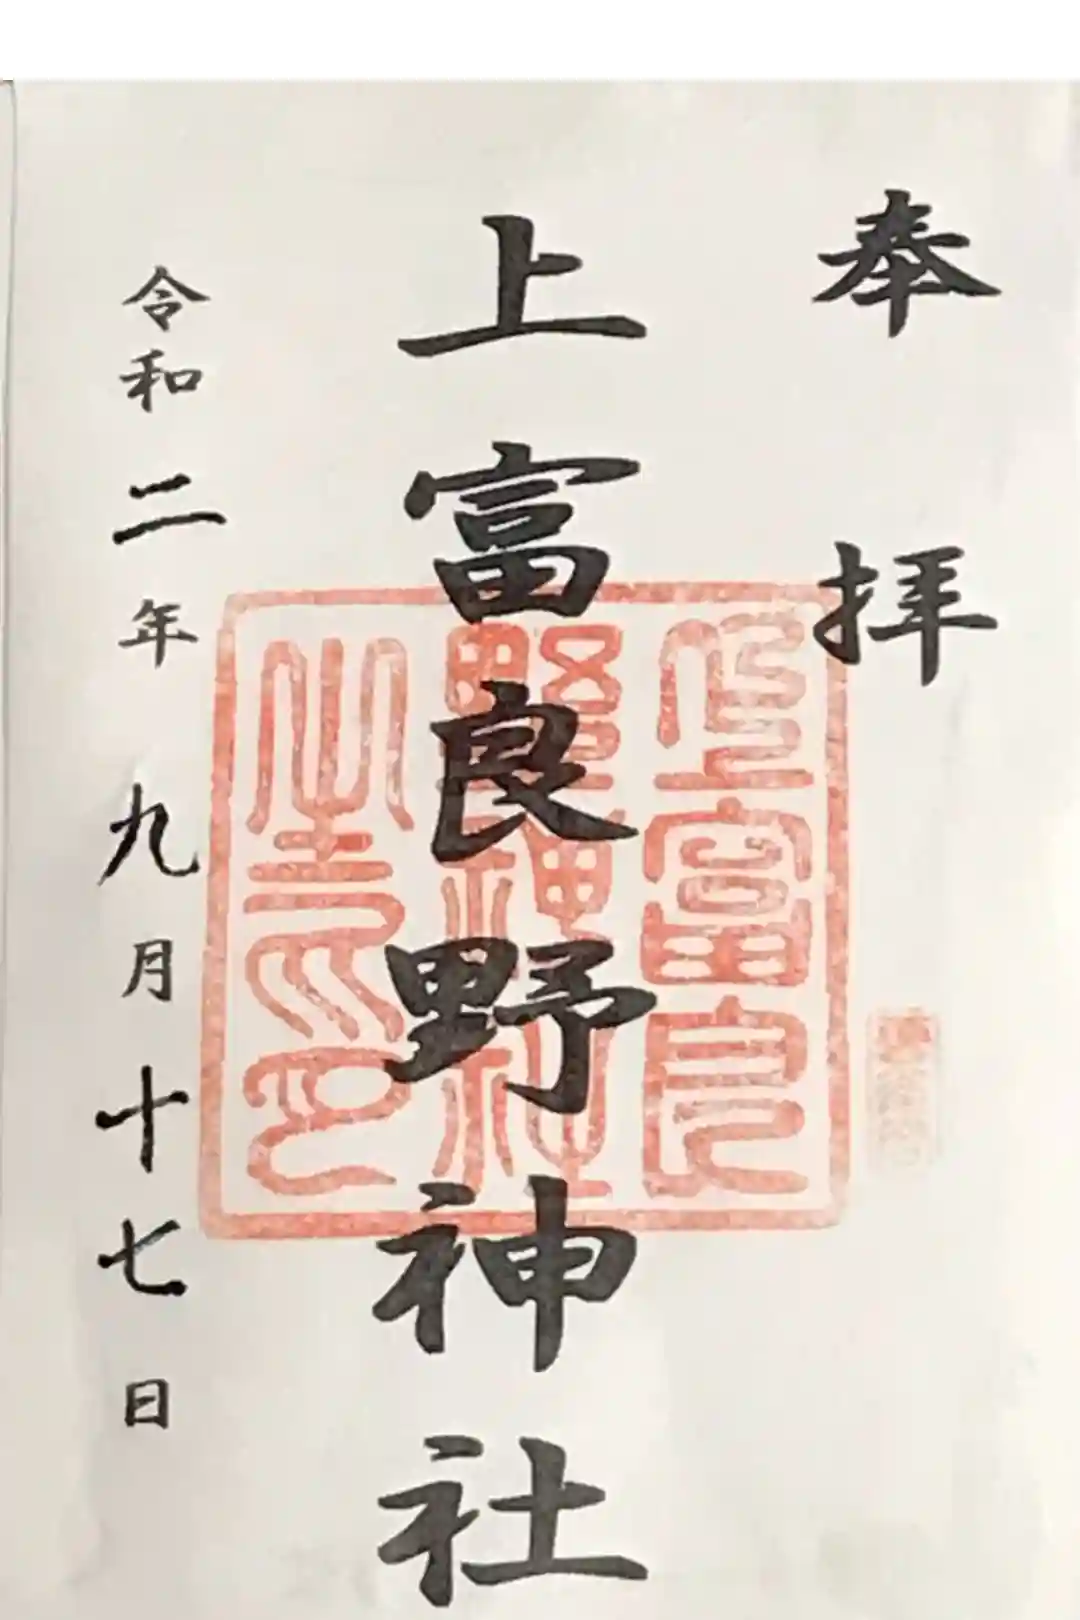 奉拝
上富良野神社
上富良
野神社
令和二年九月十七日